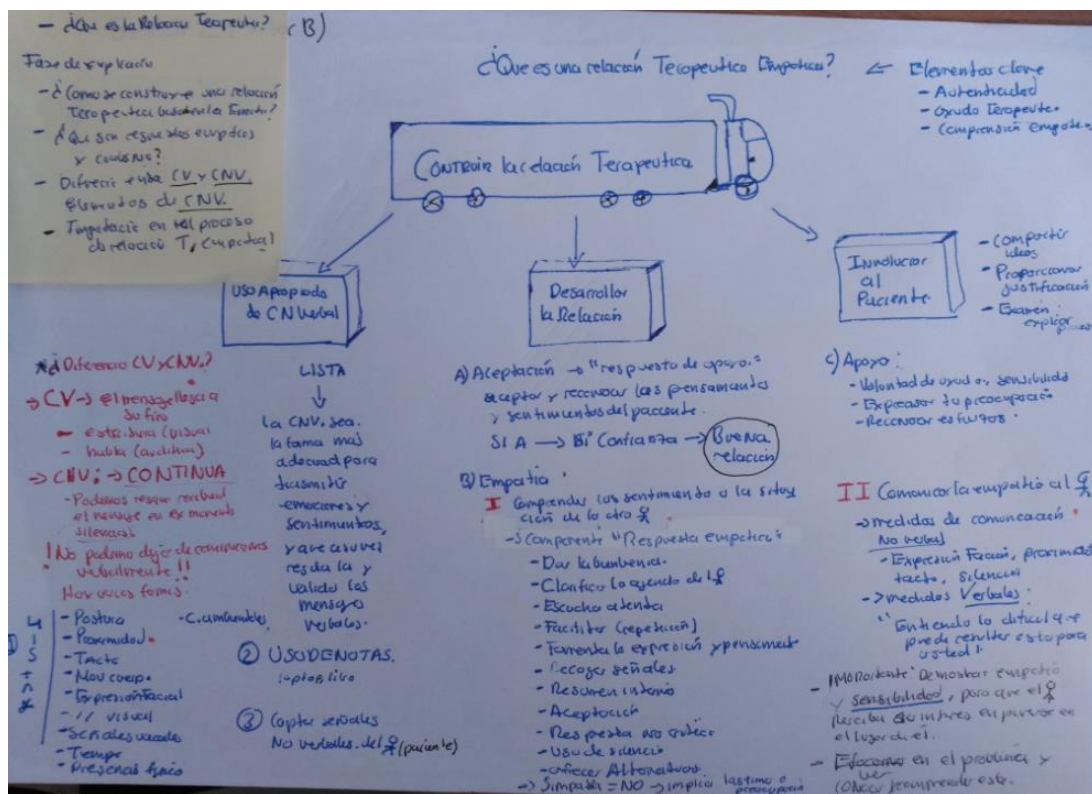 - ¿Que es la Relacion Terapeutica?
B)
Fase de explicación
- ¿Como se construye una relación
Terapeutica basada en la Empatia?
- ¿Que son respuestas empaticas
y como se No?
- Diferencia entre CV y CNV.
elementos de CNV.
- en el proceso
de relación T.
¿Que es una relación Terapeutica Empatica?
← Elementos clave
- Autenticidad
- ayuda Terapeuta.
- Comprensión empatica
CONTRUIR la relación Terapeutica
USO Apropiado
de CN Verbal
Desarrollar
la Relación
Involucrar
al
Paciente.
- Compartir
ideas
- Proporcionar
justificación
- Examen
explicar
¿Diferencia CV y CNV?
→ CV → el mensaje llega a
su fin
- escritura (visual)
- habla (auditiva)
→ CNV: → CONTINUA
- Podemos seguir recibiendo
el mensaje en momentos
silencios
! No podemos dejar de comunicarnos
!!
Hay varias formas.
LISTA
- Postura
- C. ambientales
- Proximidad
- Tacto
- Mov cuerpo
- Expresión Facial
- // visual
- Señales vocales
- Tiempo
- Presencia fisica
LISTA
↓
la CNV. sea
la forma más
adecuada para
trasmitir
emociones y
sentimientos,
y que a su vez
y
valida los
mensajes
verbales.
② USO DE NOTAS.
③ Captar señales
No verbales del (paciente)
A) Aceptación → "respuesta de apoyo."
aceptar y reconocer los pensamientos
y sentimientos del paciente.
SI A → Confianza → Buena
relación
B) Empatia
I Comprender los sentimiento o la situa
ción de la otra
→ Componente "Respuesta empatica"
- Dar la bienvenida.
- Clarifica la agenda del
- Escucha atenta
- Facilitar (repetición)
- Fomenta la expresión y pensamiento
- Recoger señales
- Resumen interno
- Aceptación
- Respuesta no critica
- Uso de silencio
- Ofrecer Alternativas.
→ Simpatia = NO → implica lastima o
preocupación
C) Apoyo:
- Voluntad de ayuda, sensibilidad
- Expresar tu preocupación
- Reconocer esfuerzos
II Comunicar la empatia al
→ medidas de comunicación
No verbal
- Expresión Facial, proximidad
tacto, silencio
→ medidas Verbales:
"Entiendo lo dificil que
puede resultar esto para
usted".
- IMPortante: Demostrar empatia
y sensibilidad, para que el
Perciba su interes en ponerse en
el lugar de él.
- en el problema y
comprende este.